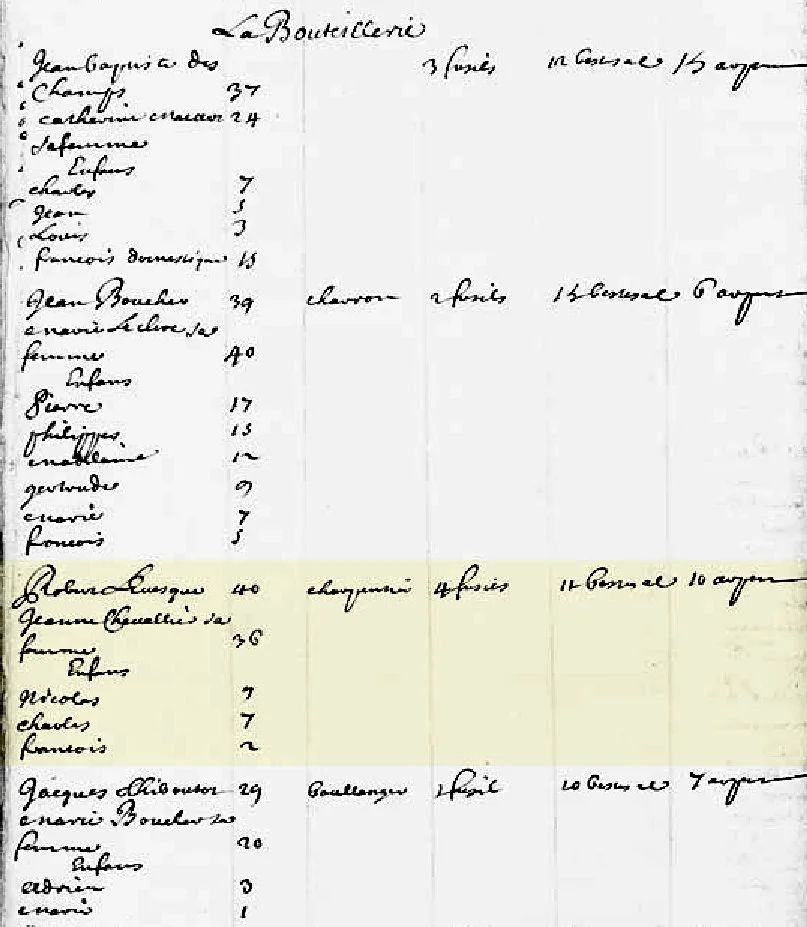 La Bouteillerie
Jean baptiste des 3 fusils 12 bestes al 15 arpens
Champs 37
catherine Macard 24
sa femme
Enfans
charles 7
Jean 5
Louis 3
francois domestique 15
Jean Boucher 39 charron 2 fusils 15 bestes al 6 arpens
marie Leclerc sa
femme 40
Enfans
Pierre 17
philippes 15
madelaine 12
gertrude 9
marie 7
francois 5
Robert Levesque 40 charpentier 4 fusils 11 bestes al 10 arpens
Jeanne Chevallier sa
femme 36
Enfans
Nicolas
charles 7
francois 2
Jacques Thiboutot 29 boullanger fusil 10 bestes al 7 arpens
marie Boucher sa
femme 20
Enfans
adrien 3
marie 1